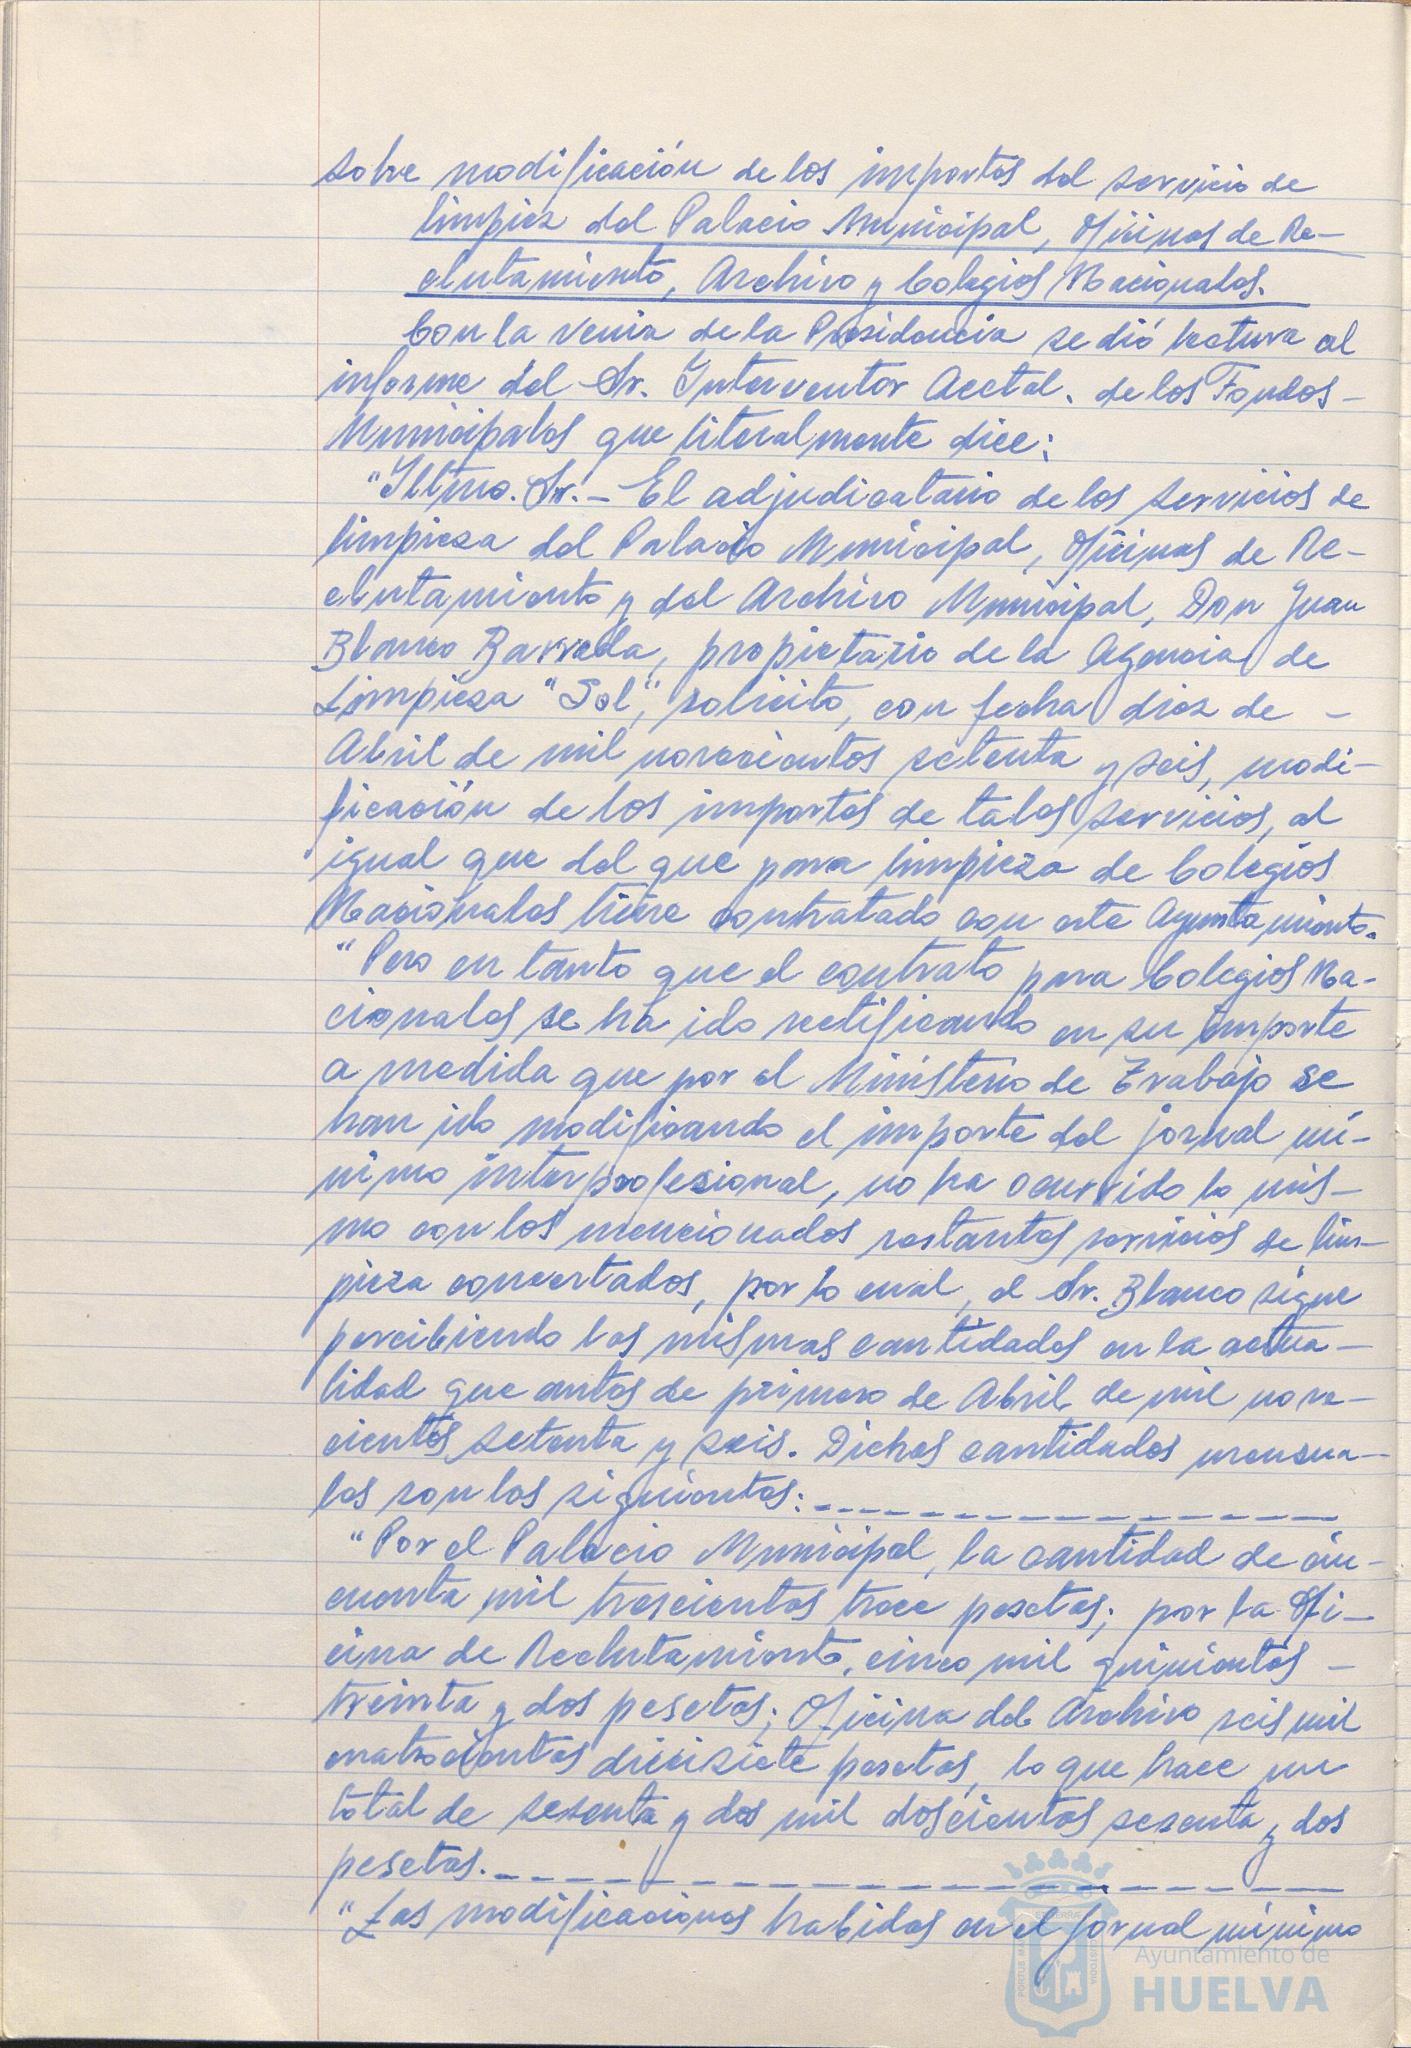 sobre modificación de los importes del servicio de
limpieza del Palacio Municipal, Oficinas de Re-
clutamiento, Archivo y Colegios Nacionales.
Con la venia de la Presidencia se dió lectura al
informe del Sr. Interventor Acctal. de los Fondos-
Municipales que literalmente dice:
"Iltmo. Sr.- El adjudicatario de los servicios de
limpieza del Palacio Municipal, Oficinas de Re-
clutamiento y del Archivo Municipal, Don Juan
Blanco Barreda, propietario de la Agencia de
Limpieza "Sol", solicitó, con fecha diez de -
Abril de mil novecientos setenta y seis, modi-
ficación de los importes de tales servicios, al
igual que del que para limpieza de Colegios
Nacionales tiene contratado con este Ayuntamiento.
"Pero en tanto que el contrato para Colegios Na-
cionales se ha ido rectificando en su importe
a medida que por el Ministerio de Trabajo se
han ido modificando el importe del jornal mí-
nimo interprofesional, no ha ocurrido lo mis-
mo con los mencionados restantes servicios de lim-
pieza concertados, por lo cual, el Sr. Blanco sigue
percibiendo las mismas cantidades en la actua-
lidad que antes de primero de Abril de mil nove-
cientos setenta y seis. Dichas cantidades mensua-
les son las siguientes: - - - - - - - - - - - - - -
"Por el Palacio Municipal, la cantidad de cin-
cuenta mil trescientas trece pesetas; por la Ofi-
cina de Reclutamiento, cinco mil quinientas -
treinta y dos pesetas; Oficina del Archivo seis mil
cuatrocientas diecisiete pesetas, lo que hace un
total de sesenta y dos mil doscientas sesenta y dos
pesetas. - - - - - - - - - - - - - - - - - - -
"Las modificaciones habidas en el jornal mínimo
Ayuntamiento de
HUELVA